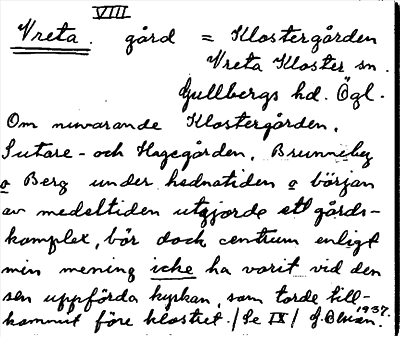 VIII
Vreta. gård = Klostergården
Vreta Kloster sn.
Gullbergs hd. Ögl.
Om nuvarande Klostergården,
Sutare- och Hagegården, Brunneby
o Berg under hednatiden o början
av medeltiden utgjorde ett gårds-
komplex, bör dock centrum enligt
min mening icke ha varit vid den
sen uppförda kyrkan, som torde till-
kommit före klostret. / Se IX / 1937.